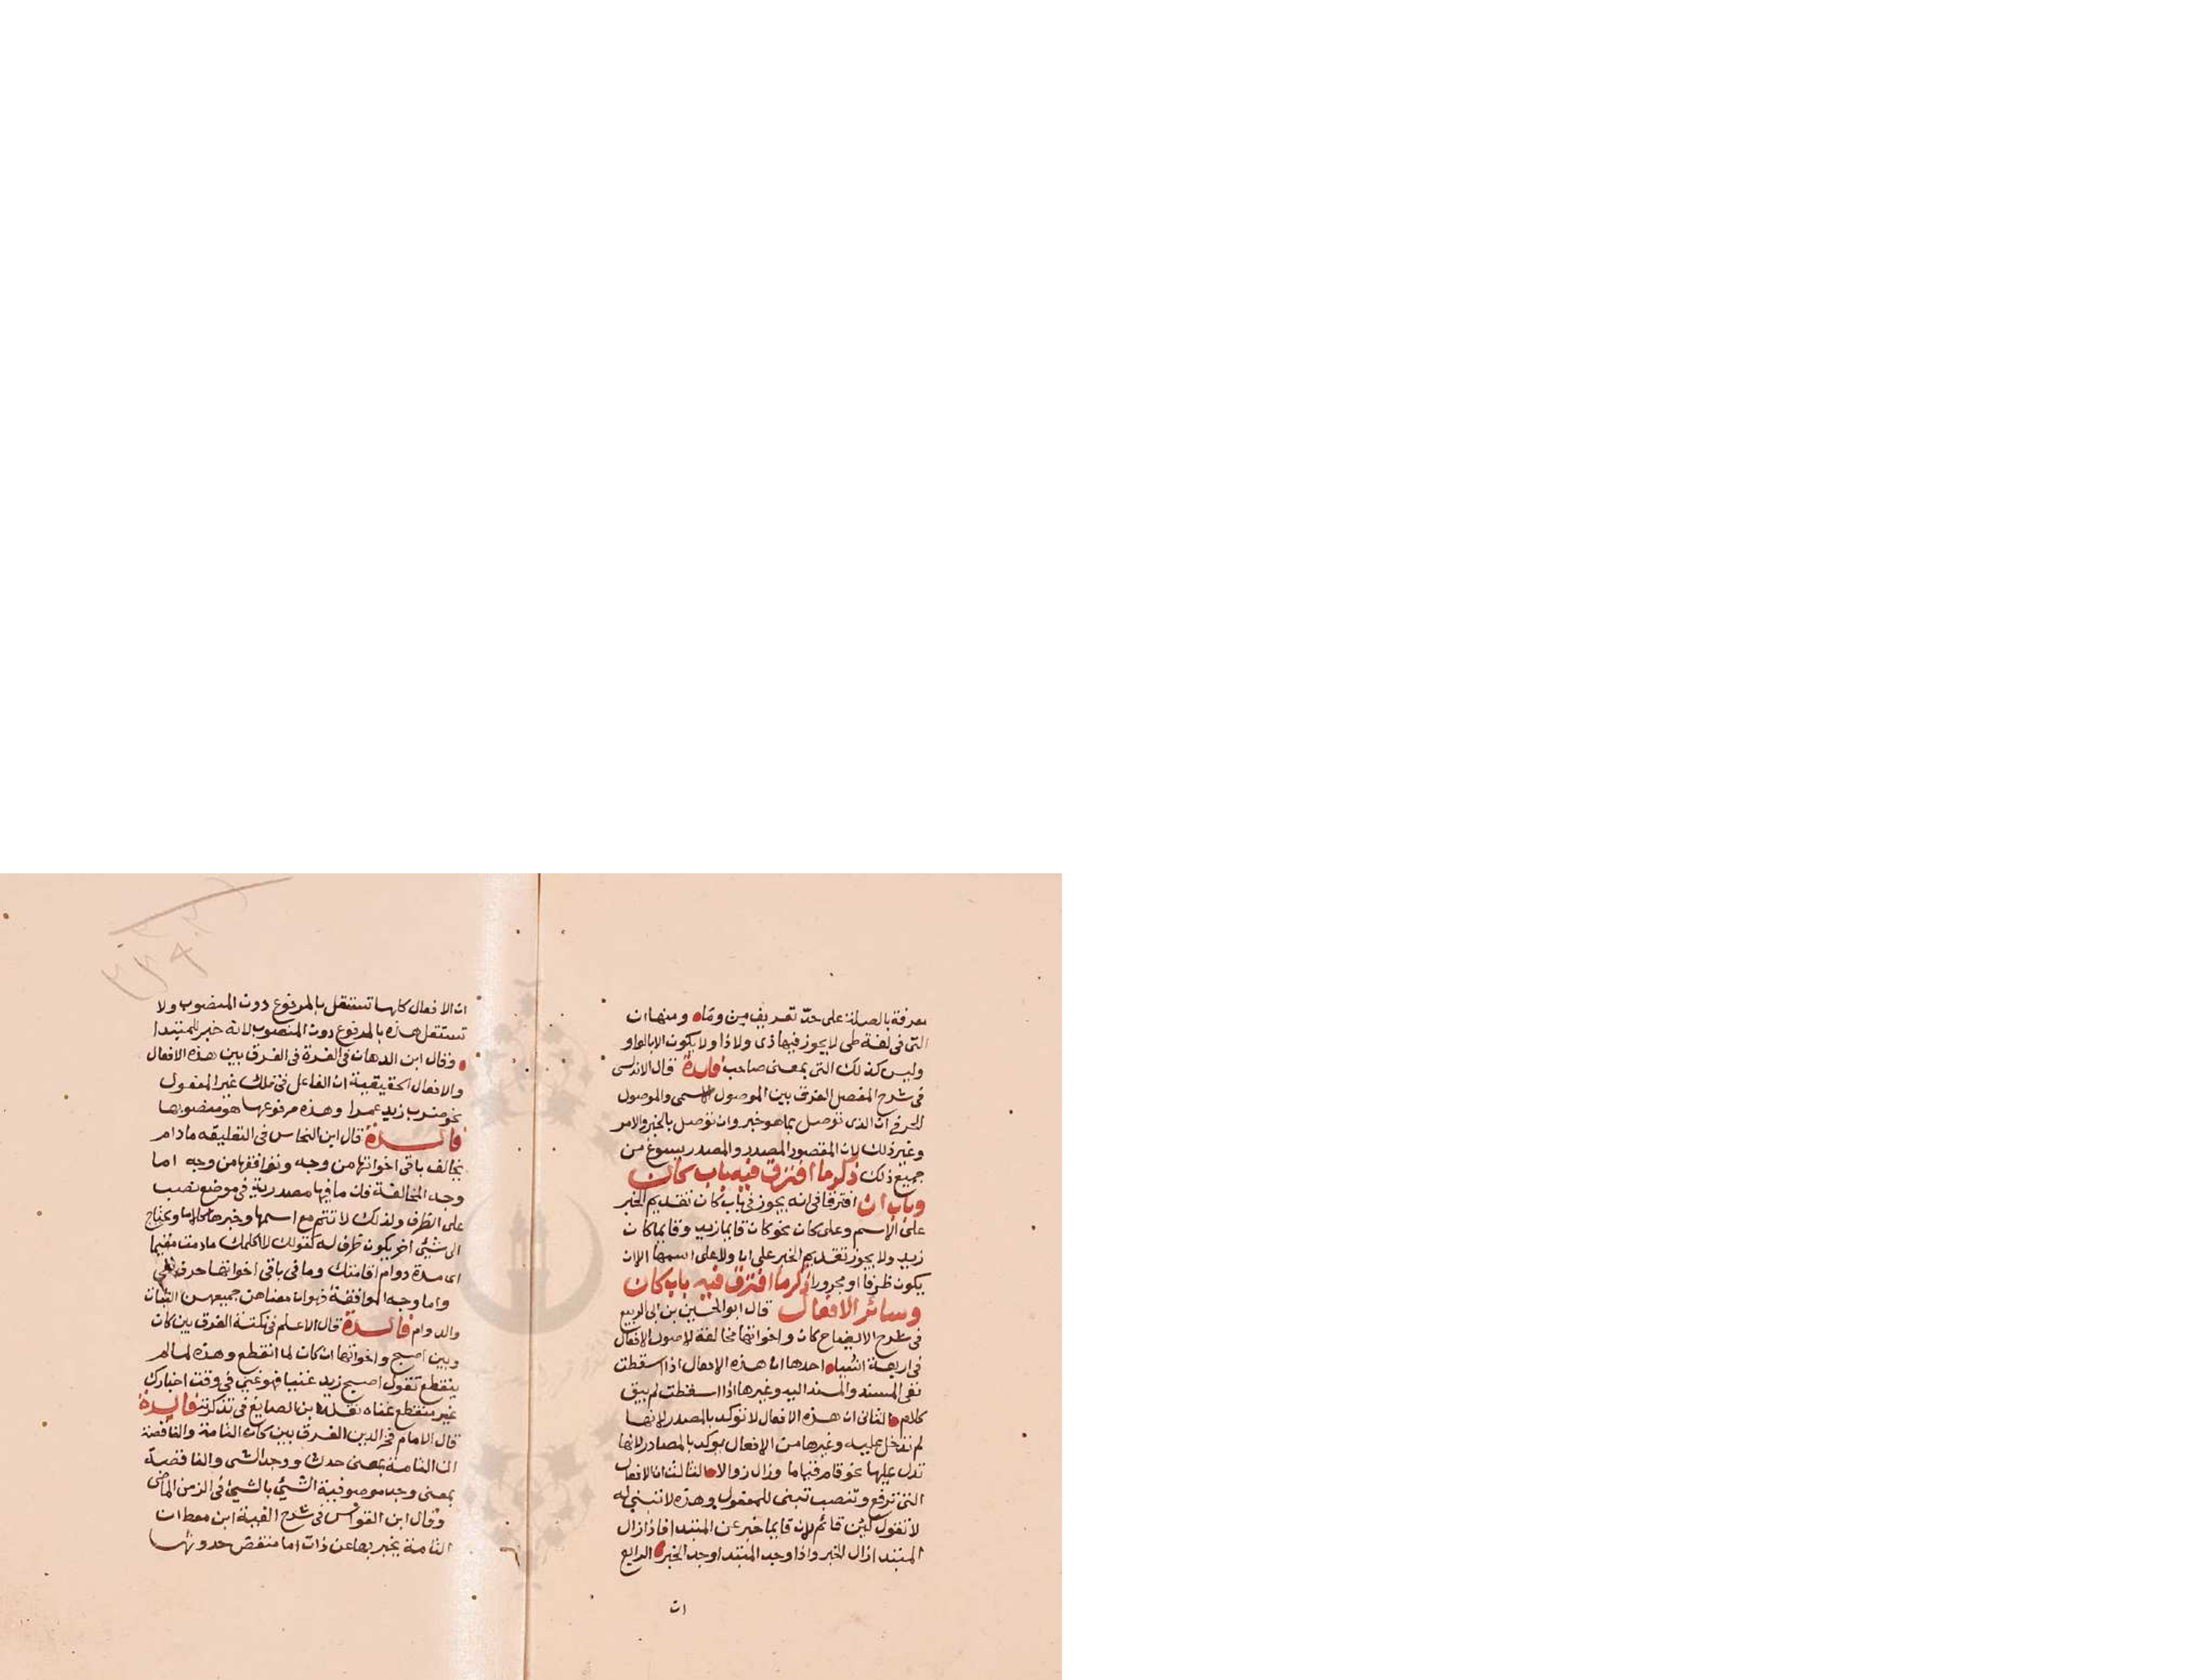 معرفة بالصلة على حدّ تعريف من وما ومنها ان
التى فى لغة طى لا يجوز فيها ذى ولا ذا ولا يكون الا بالواو
وليس كذلك التى بمعنى صاحب فايدة قال الاندلسى
فى شرح المفصل الفرق بين الموصول الاسمى والموصول
الحرفى ان الذى توصل بما هو خبر وان توصل بالخبر والامر
وغير ذلك لان المقصود المصدر والمصدر يسوغ من
جميع ذلك ذكر ما افترق فيه باب كان
وباب ان افترقا فى انه يجوز فى باب كان تقديم الخبر
على الاسم وعلى كان نحو كان قايما زيد وقايما كان
زيد ولا يجوز تقديم الخبر على ان ولا على اسمها الا ان
يكون ظرفا او مجرورا ذكر ما افترق فيه باب كان
وسائر الافعال قال ابو الحسين بن ابى الربيع
فى شرح الايضاح كان واخواتها مخالفة لاصول الافعال
فى اربعة اشياء احدها ان هذه الافعال اذا اسقطت
بقى المسند والمسند اليه وغيرها اذا اسقطت لم يبق
كلام الثانى ان هذه الافعال لا توكد بالمصدر لانها
لم تدخل عليه وغيرها من الافعال يوكد بالمصادر لانها
تدل عليها نحو قام قياما وزال زوالا الثالث ان الافعال
التى ترفع وتنصب تبنى للمفعول وهذه لا تبنى له
لا تقول كين قائم لان قايما خبر عن المبتدا فاذا زال
المبتدا زال الخبر واذا وجد المبتدا وجد الخبر الرابع
ان
ان الافعال كلها تستقل بالمرفوع دون المنصوب ولا
تستقل هذه بالمرفوع دون المنصوب لانه خبر للمبتدا
وقال ابن الدهان فى الغرة فى الفرق بين هذه الافعال
والافعال الحقيقية ان الفاعل فى تلك غير المفعول
نحو ضرب زيد عمرا وهذه مرفوعها هو منصوبها
فائدة قال ابن النحاس فى التعليقه مادام
تخالف باقى اخواتها من وجه وتوافقها من وجه اما
وجه المخالفة فان ما فيها مصدرية فى موضع نصب
على الظرف ولذلك لا تتم مع اسمها وخبرها كلاما وتحتاج
الى شيئ اخر يكون ظرف له كقولك لا اكلمك مادمت مقيما
اى مدة دوام اقامتك وما فى باقى اخواتها حرف نفى
واما وجه الموافقة فهو ان معناهن جميعهن الثبات
والدوام فائدة قال الاعلم فى نكتة الفرق بين كان
وبين اصبح واخواتها ان كان لما انقطع وهذه لما لم
ينقطع تقول اصبح زيد غنيا فهو غنى فى وقت اخبارك
غير منقطع غناه نقله ابن الصايغ فى تذكرته فائدة
قال الامام فخر الدين الفرق بين كان التامة والناقصة
ان التامة بمعنى حدث ووجد الشى والناقصة
بمعنى وجد موصوفية الشيئ بالشيئ فى الزمن الماضى
وقال ابن القواس فى شرح الفية ابن معط ان
التامة يخبر بها عن ذات اما منقض حدوثها